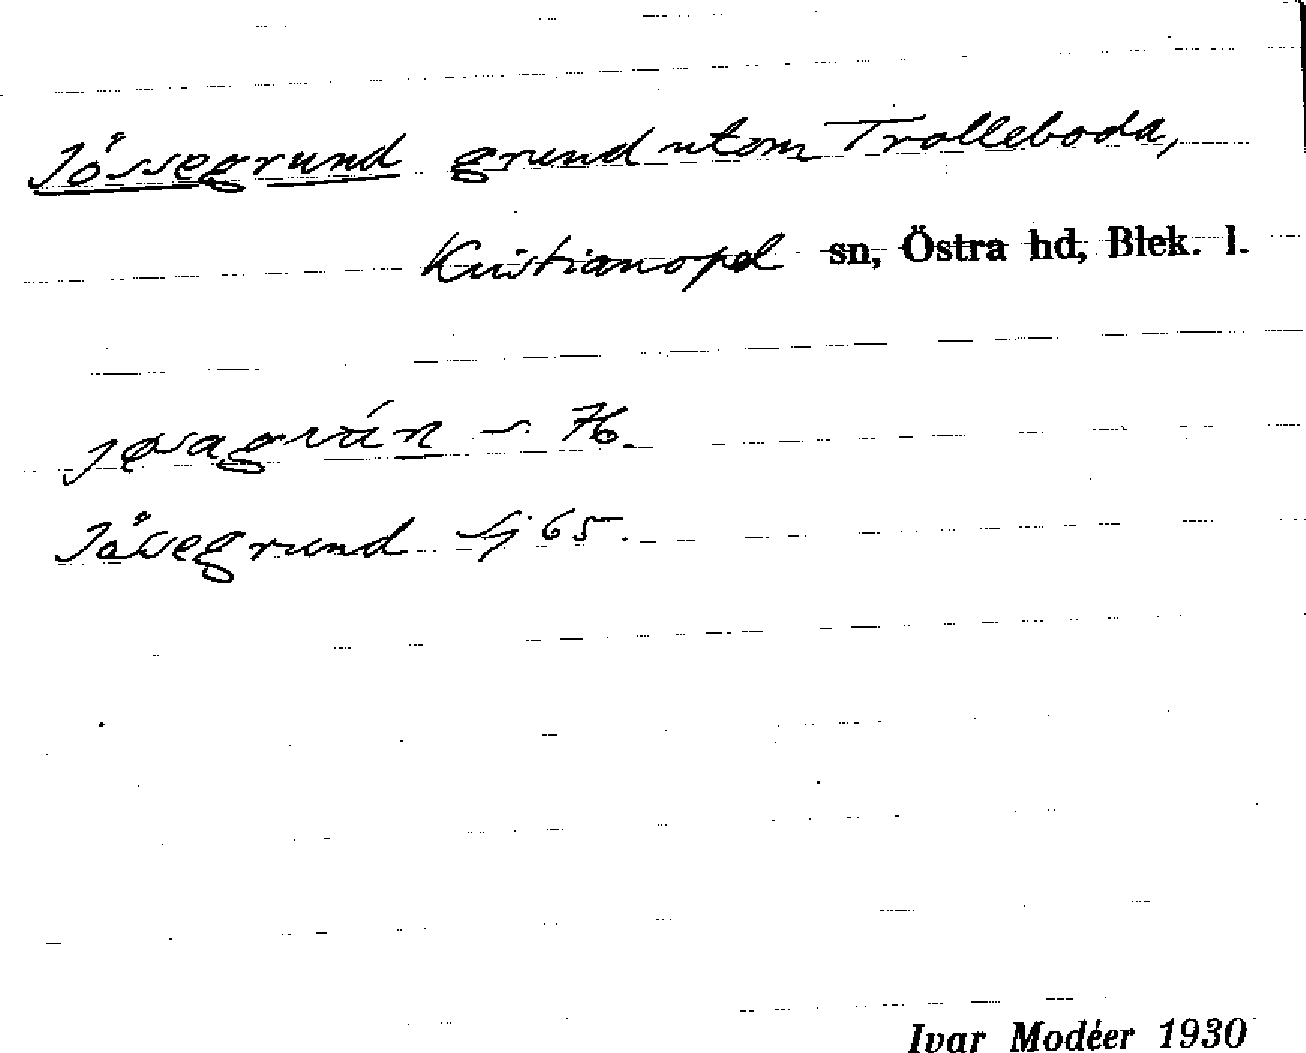 Jåssegrund grund utom Trolleboda,
Kristianopel sn, Östra hd, Blek. l.
76.
Jåssegrund Sj 65.
Ivar Modéer 1930